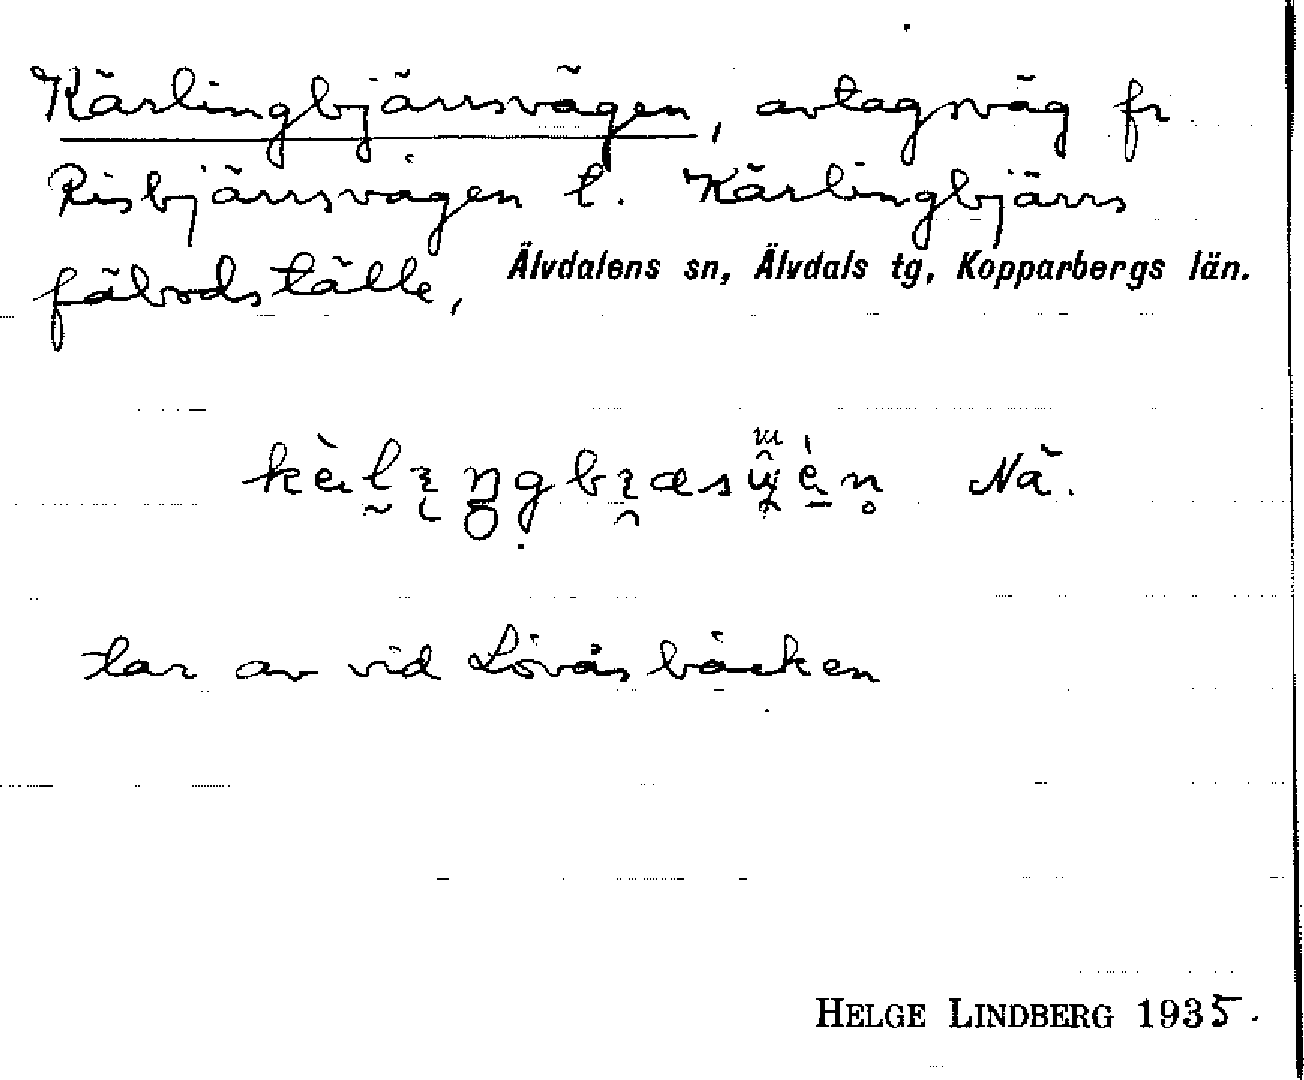 Kärlingbjärrsvägen, avtagsväg fr
Risbjärrsvägen t. Kärlingbjärrs
fäbodställe, Älvdalens sn, Älvdals tg, Kopparbergs län.
Nä.
tar av vid Lövåsbäcken
HELGE LINDBERG 1935.